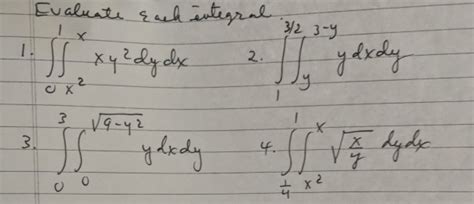 Evaluate each integral.
1. ∫₀¹ ∫_{x²}^{x} xy² dy dx 2. ∫₁^{3/2} ∫_{y}^{3-y} y dx dy
3. ∫₀³ ∫₀^{√(9-y²)} y dx dy 4. ∫_{1/4}^{1} ∫_{x²}^{x} √(x/y) dy dx